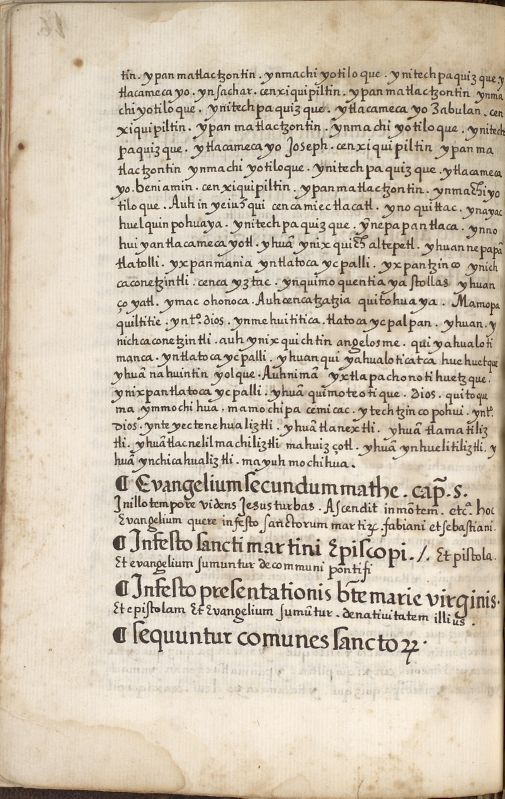 tin. ypan matlactzontin. ynmachiyotiloque. ynitech paquizque y
tlacamecayo. ynsachar. cenxiquipiltin. ypan matlactzontin ynma
chiyotiloque. ynitech paquizque. ytlacamecayo Zabulan. cen
xiquipiltin. ypan matlactzontin. ynmachiyotiloque. ynitech
paquizque. ytlacamecayo Joseph. cenxiquipiltin ypan ma
tlactzontin ynmachiyotiloque. ynitech paquizque. ytlacameca
yo. beniamin. cenxiquipiltin. ypan matlactzontin. ynmachiyo
tiloque. Auh in yeiuhqui cencamiec tlacatl. yno quittac. ynayac
huel quinpohuaya. ynitech paquizque. yñepapan tlaca. ynno
huiyan tlacamecayotl. yhuã ynixquich altepetl. yhuan nepapã
tlatolli. yxpan mania yntlatoca ycpalli. yxpantzinco ynich
caconetzintli. cenca yztac. ynquimoquentia ya stollas yhuan
çoyatl. ymac ohonoca. Auh cenca tzatzia quitohuaya. Mamopa
quiltitie. ynto. dios. ynmehuititica. tlatoca ycpalpan. yhuan. y
nichcaconetzintli. auh ynixquichtin angelosme. qui yahualoti
manca. yntlatoca ycpalli. yhuan qui yahualoticatca huehuetque
yhuã nahuintin yolque. Auhnimã yxtlapachonotihuetzque.
ynixpan tlatoca ycpalli. yhuã quimoteotique. Dios. quitoque
ma ymmochihua. mamochipa cemicac. ytechtzinco pohui. ynto.
Dios. ynteyectenehualiztli. yhuã tlanextli. yhuã tlamatiliz
tli. yhuã tlacnelilmachiliztli mahuizçotl. yhuã ynhuelitiliztli. y
huã ynchicahualiztli. mayuh mochihua.
¶ Evangelium secundum mathe. cap̃. 5.
In illo tempore videns Jesus turbas. Ascendit in mõtem. etc. hoc
Evangelium quere in festo sanctorum martiꝝ fabiani et sebastiani.
¶ In festo sancti martini Episcopi. /. Et pistola.
Et evangelium sumuntur de communi pontifi
¶ In festo presentationis bt̃e marie virginis.
Et epistolam Et Evangelium sumũtur. de nativitatem illius.
¶ sequuntur comunes sanctoꝝ.